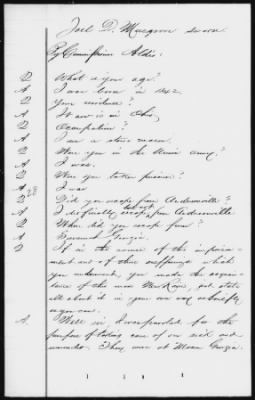 Joel D. Musgrove sworn.
By Commissioner Aldis:
Q What is your age?
A I was born in 1842.
Q Your residence?
A It now is in Ohio,
Q Occupation?
A I am a stone mason.
Q Were you in the Union army?
A I was.
Q Were you taken prisoner?
A I was
Q Did you escape from Andersonville?
A I did finally escape from Andersonville.
Q Where did you escape from?
A Savannah Georgia.
Q If in the course of the imprison-
ment and of these sufferings which
you underwent, you made the acquain-
tance of the man , just state
all about it in your own way as briefly
as you can.
A. There in I was paroled for the
purpose of taking care of our sick and
wounded. They were at Macon Georgia.